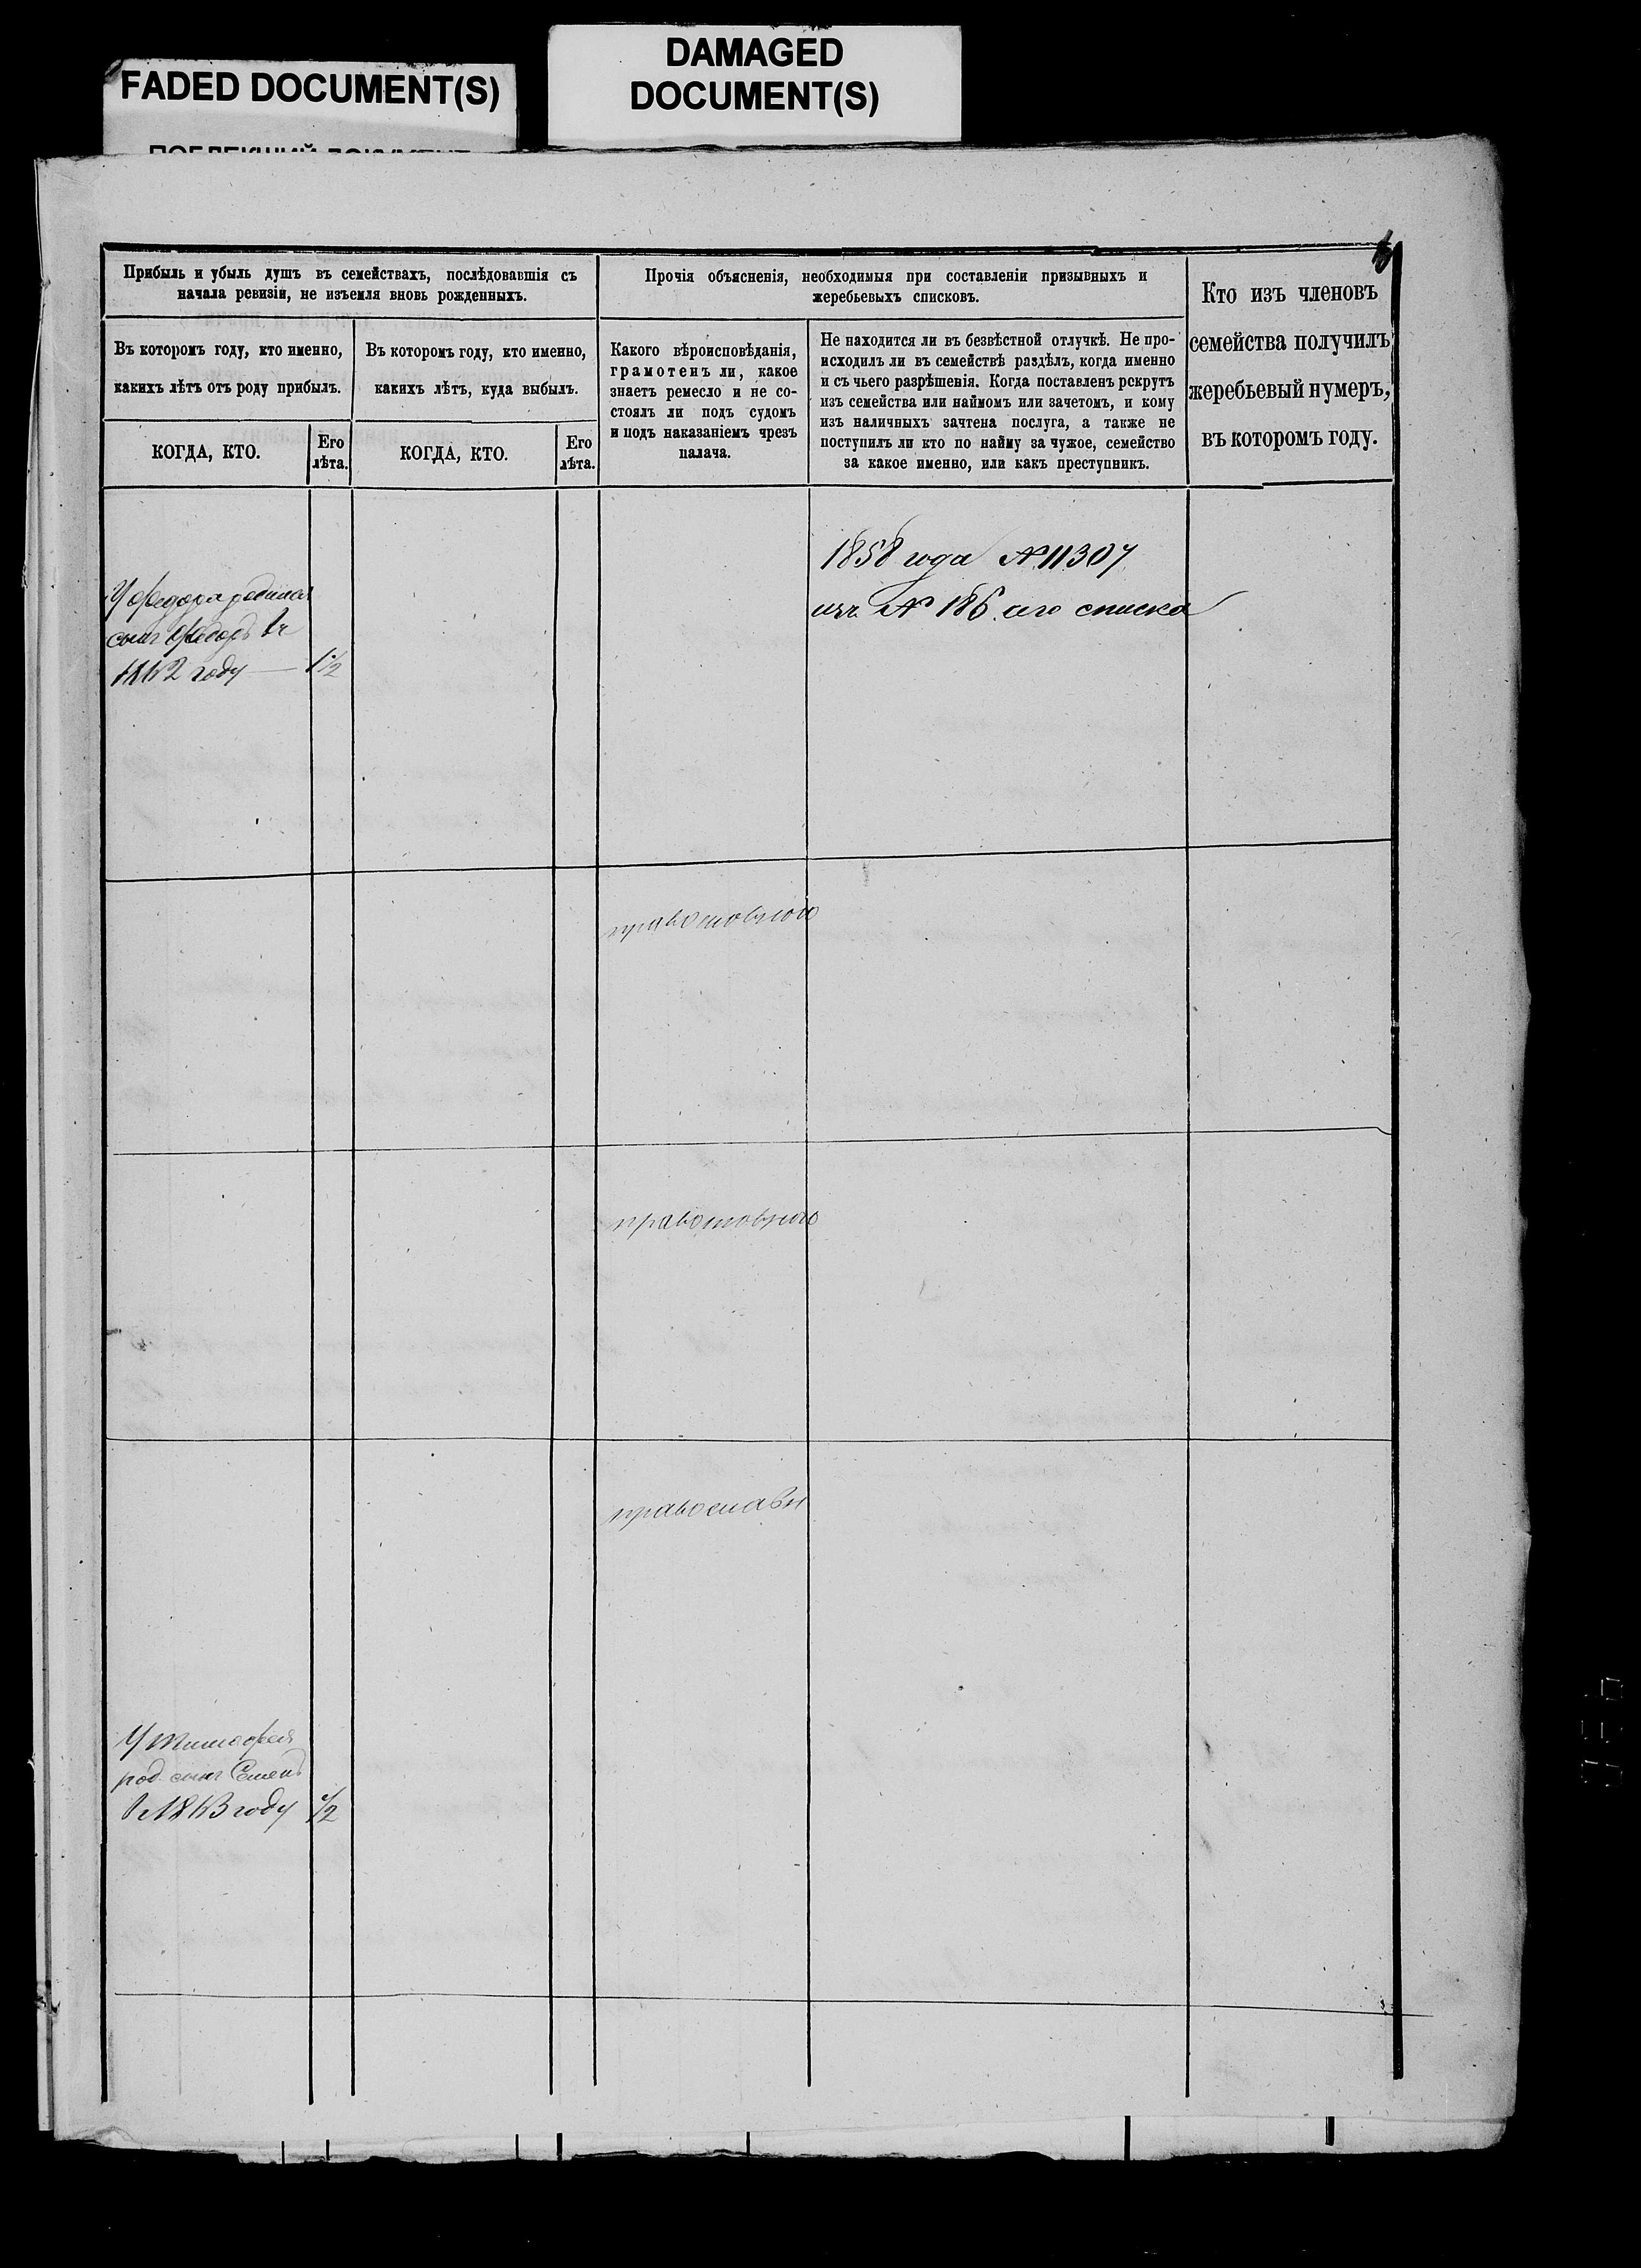 FADED DOCUMENT(S)
DAMAGED
DOCUMENT(S)
Прибыль и убыль душъ въ семействахъ, послѣдовавшія съ
начала ревизіи, не изъемля вновь рожденныхъ.
Въ которомъ году, кто именно,
какихъ лѣтъ отъ роду прибылъ.
КОГДА, КТО.
Его
лѣта.
Въ которомъ году, кто именно,
какихъ лѣтъ, куда выбылъ.
КОГДА, КТО.
Его
лѣта.
Прочія объясненія, необходимыя при составленіи призывныхъ и
жеребьевыхъ списковъ.
Какого вѣроисповѣданія,
грамотенъ ли, какое
знаетъ ремесло и не со-
стоялъ ли подъ судомъ
и подъ наказаніемъ чрезъ
палача.
Не находится ли въ безвѣстной отлучкѣ. Не про-
исходилъ ли въ семействѣ раздѣлъ, когда именно
и съ чьего разрѣшенія. Когда поставленъ рекрутъ
изъ семейства или наймомъ или зачетомъ, и кому
изъ наличныхъ зачтена послуга, а также не
поступилъ ли кто по найму за чужое, семейство
за какое именно, или какъ преступникъ.
Кто изъ членовъ
семейства получилъ
жеребьевый нумеръ,
въ которомъ году.
1858 года № 11307
изъ № 186 сего списка
У Федора родился
сынъ Федоръ въ
году 1 1/2
православного
православного
православн
У Тимофея
род. сынъ Семенъ
году 1/2